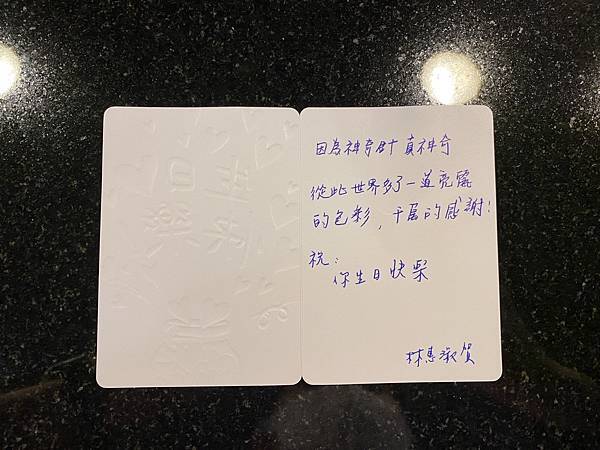 生日
快樂
因為神奇 真神奇
從此世界多了一道亮麗
的色彩，千萬的感謝！
祝：
你生日快樂
林惠淑賀